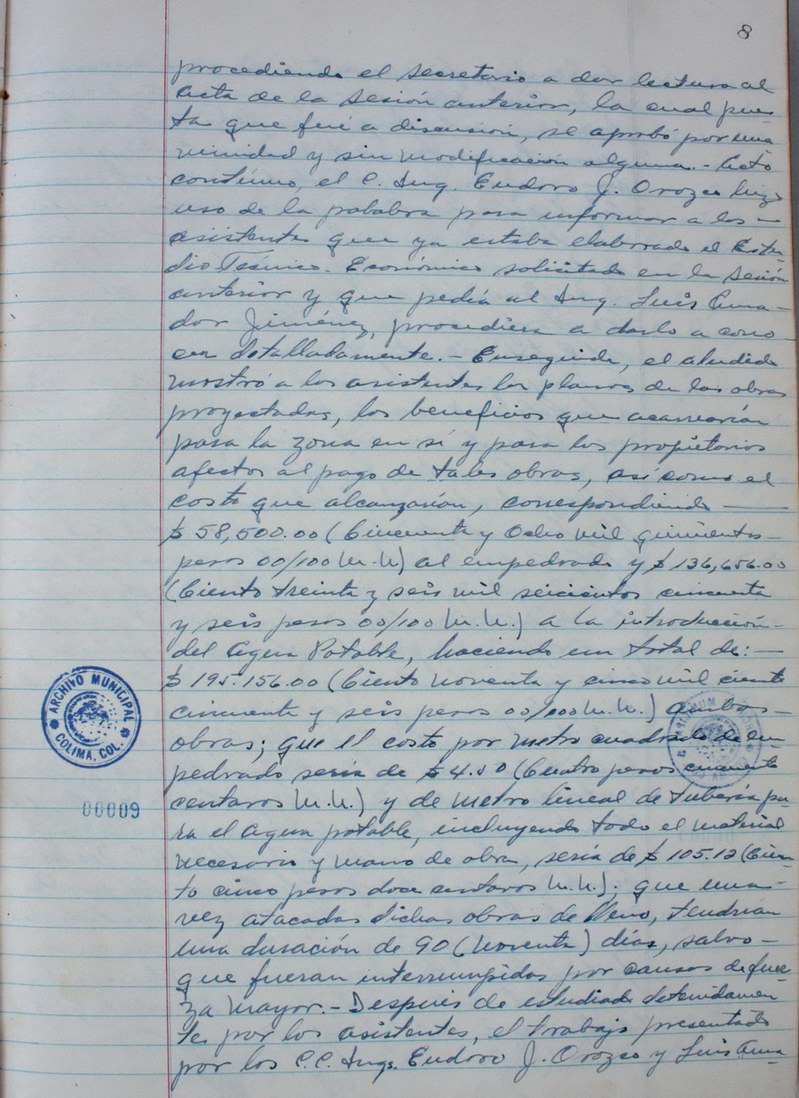 8
procediendo el secretario a dar lectura al
acta de la sesión anterior, la cual pues
ta que fué a discusión, se aprobó por una
nimidad y sin modificación alguna.- Acto
contínuo, el C. Ing. Eudoro J. Orozco hizo
uso de la palabra para informar a los -
asistentes que ya estaba elaborado el Estu-
dio Técnico. Económico solicitado en la sesión
anterior y que pedía al Ing. Luis Ama-
dor Jiménez, procediera a darlo a cono-
cer detalladamente.- Enseguida, el aludido
mostró a los asistentes los planos de las obras
proyectadas, los beneficios que acarrearían
para la zona en sí y para los propietarios
afectos al pago de tales obras, así como el
costo que alcanzarían, correspondiendo —
$ 58,500.00 (Cincuenta y Ocho mil quinientos -
pesos 00/100 M.N.) al empedrado y $ 136,656.00
(Ciento treinta y seis mil seicientos cincuenta
y seis pesos 00/100 M.N.) a la introducción -
del Agua Potable, haciendo un total de: —
$ 195.156.00 (Ciento noventa y cinco mil ciento
cincuenta y seis pesos 00/100 M.N.) ambas -
obras; que el costo por metro cuadrado de em-
pedrado sería de $ 4.50 (Cuatro pesos cincuenta
centavos M.N.) y de metro lineal de tubería pa-
ra el Agua potable, incluyendo todo el material
necesario y mano de obra, sería de $ 105.12 (Cien-
to cinco pesos doce centavos M.N.). que una -
vez atacadas dichas obras de lleno, tendrían
una duración de 90 (noventa) días, salvo -
que fueran interrumpidas por causas de fuer
za mayor.- Después de estudiado detenidamen
te por los asistentes, el trabajo presentado
por los C.C. Ings. Eudoro J. Orozco y Luis Ama-
ARCHIVO MUNICIPAL
COLIMA, COL.
00009